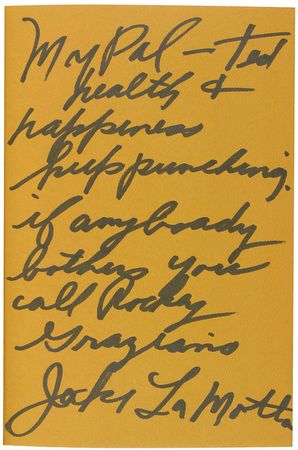 My Pal – Ted
health &
happiness
keep punching.
if anyboady
bothers you
call Rocky
Graziano
Jake La Motta